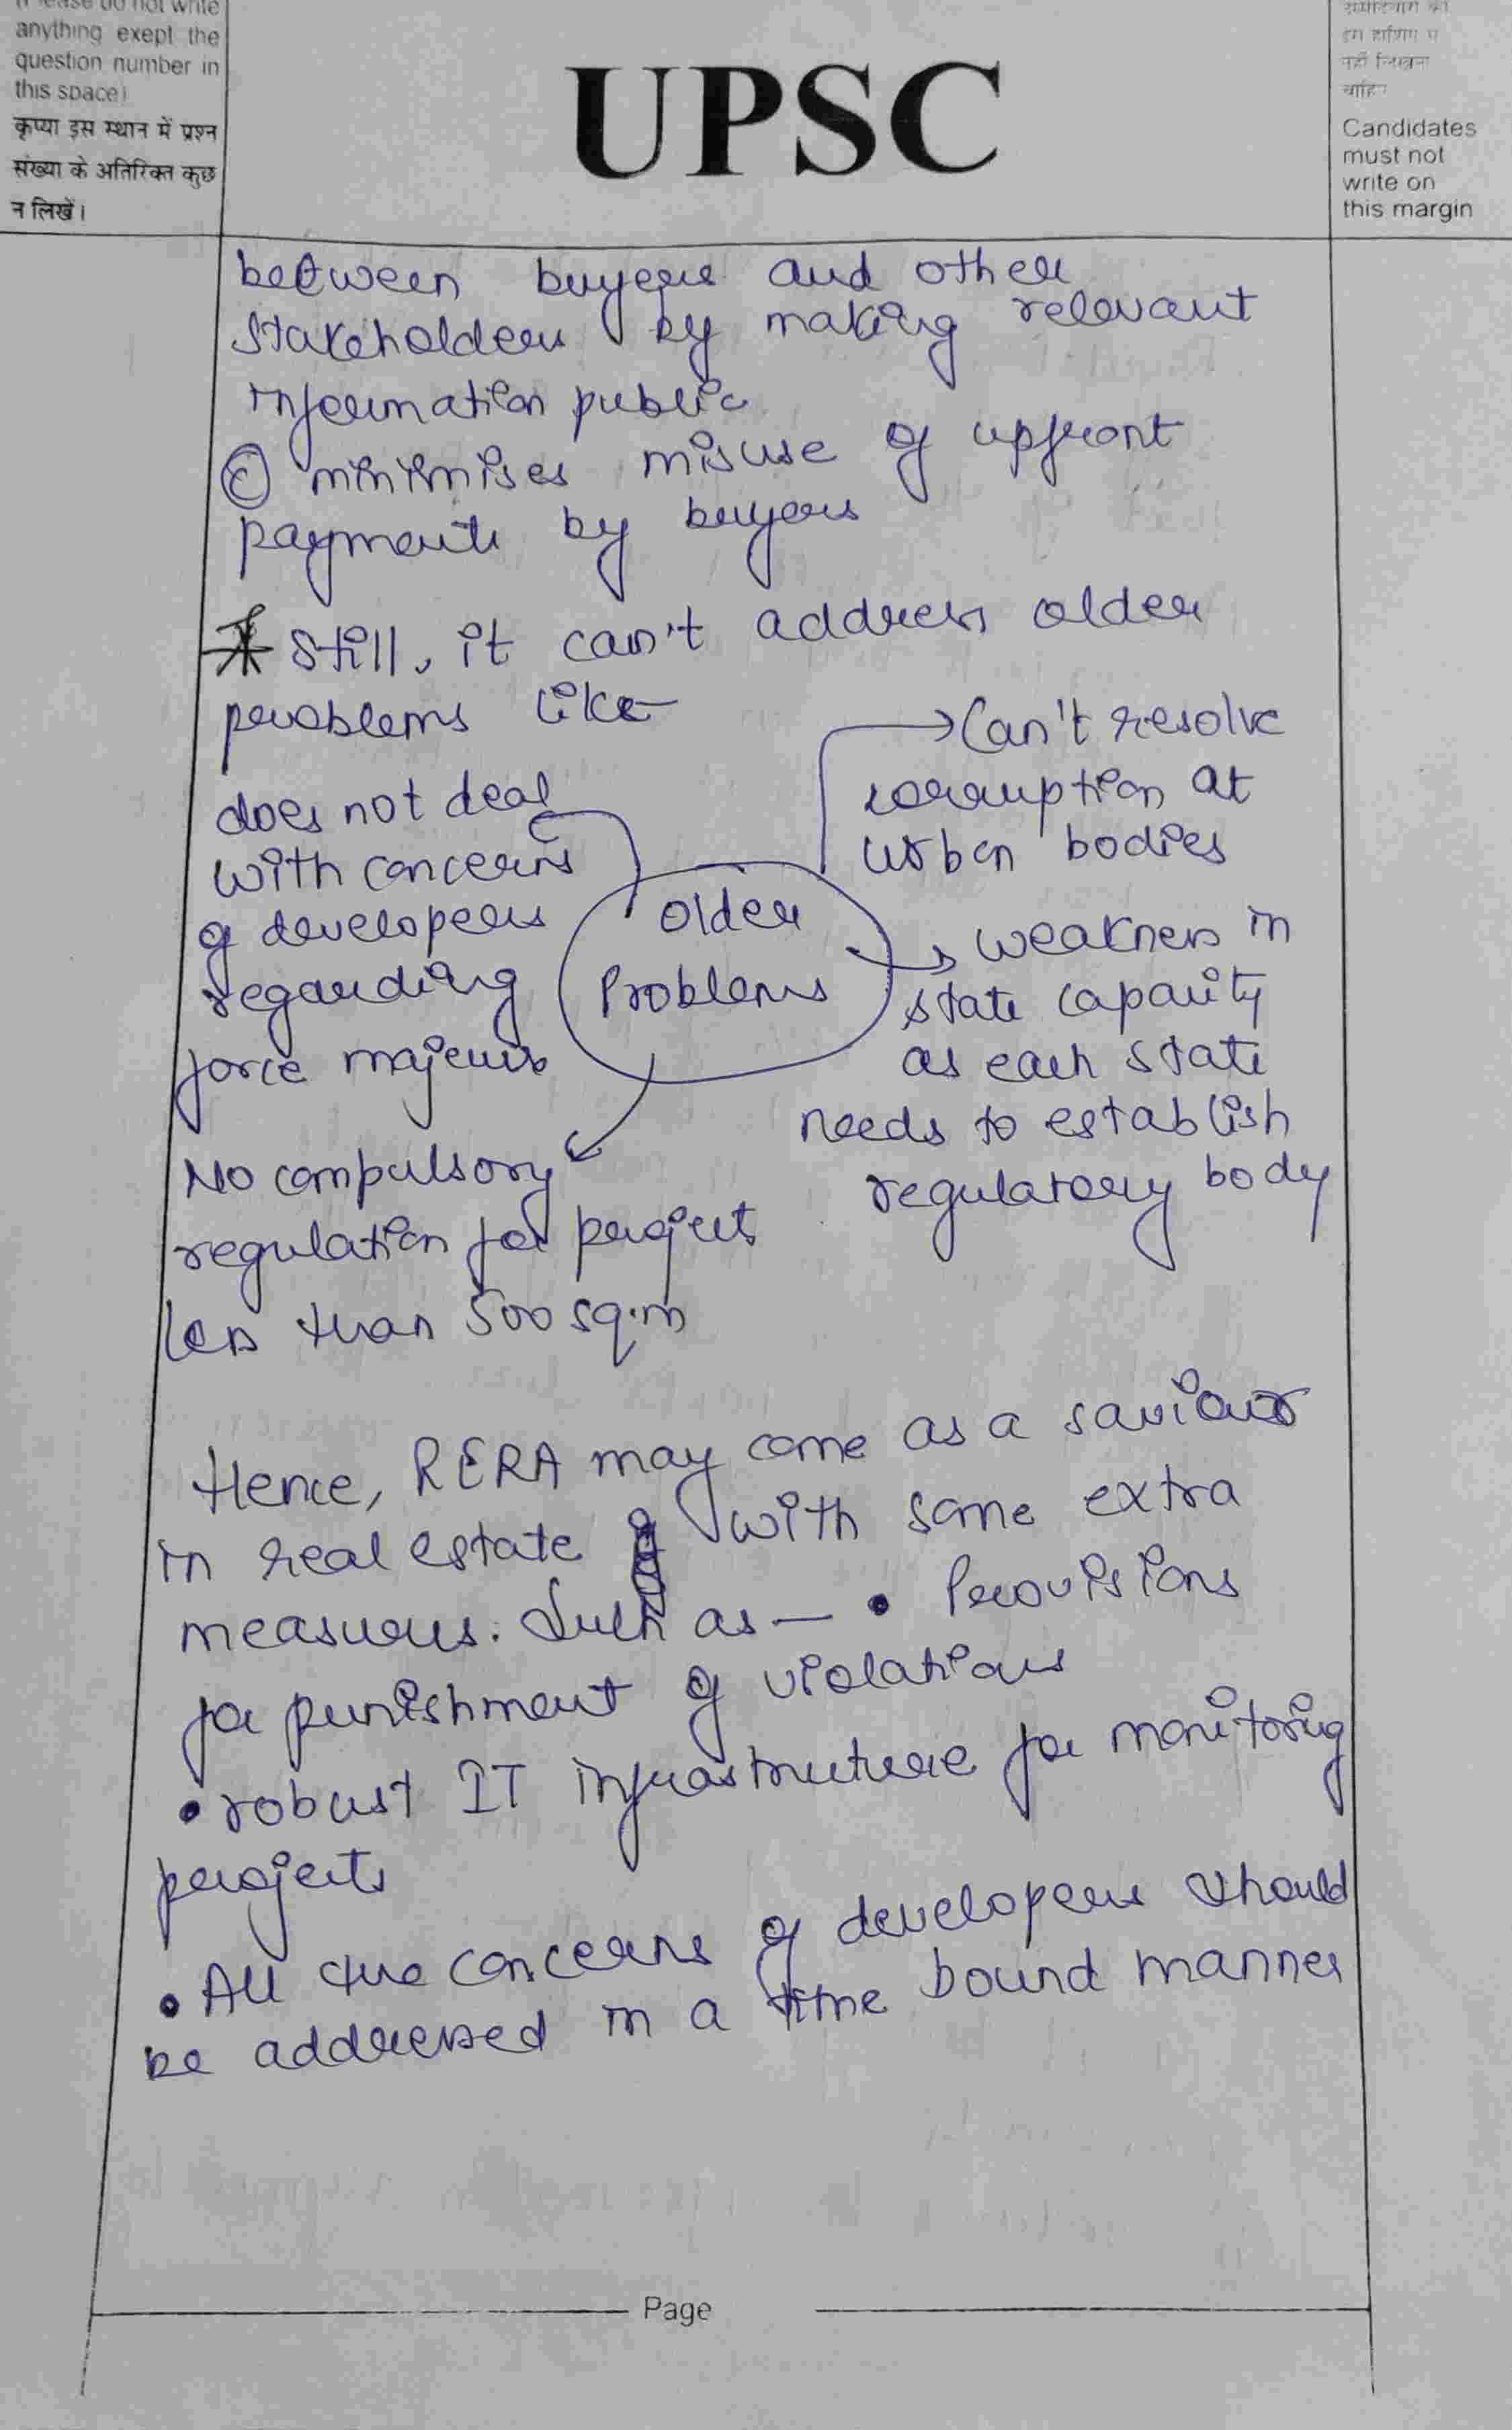 anything exept the
question number in
this space)
कृप्या इस स्थान में प्रश्न
संख्या के अतिरिक्त कुछ
न लिखें।
UPSC
Candidates
must not
write on
this margin
between buyers and other
stakeholders by making relevant
information public
(c) minimises misuse of upfront
payments by buyers
* Still, it can't address older
problems like
does not deal
with concerns
of developers
regarding
force majeure
Older
Problems
→ Can't resolve
corruption at
urban bodies
→ weakness in
state capacity
as each state
needs to establish
regulatory body
No compulsory
regulation for project
less than 500 sq.m
Hence, RERA may come as a saviour
in real estate with some extra
measures. Such as — • Provisions
for punishment of violations
• robust IT infrastructure for monitoring
projects
• All the concerns of developers should
be addressed in a time bound manner
Page